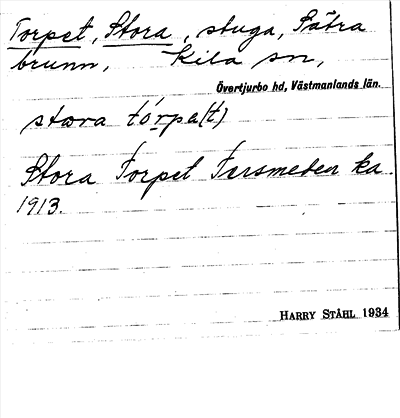 Torpet, Stora, stuga, Sätra
brunn, Kila sn,
Övertjurbo hd, Västmanlands län.
stora tórpe(t)
Stora Torpet Fersmeden ka.
1913.
HARRY STÅHL 1934